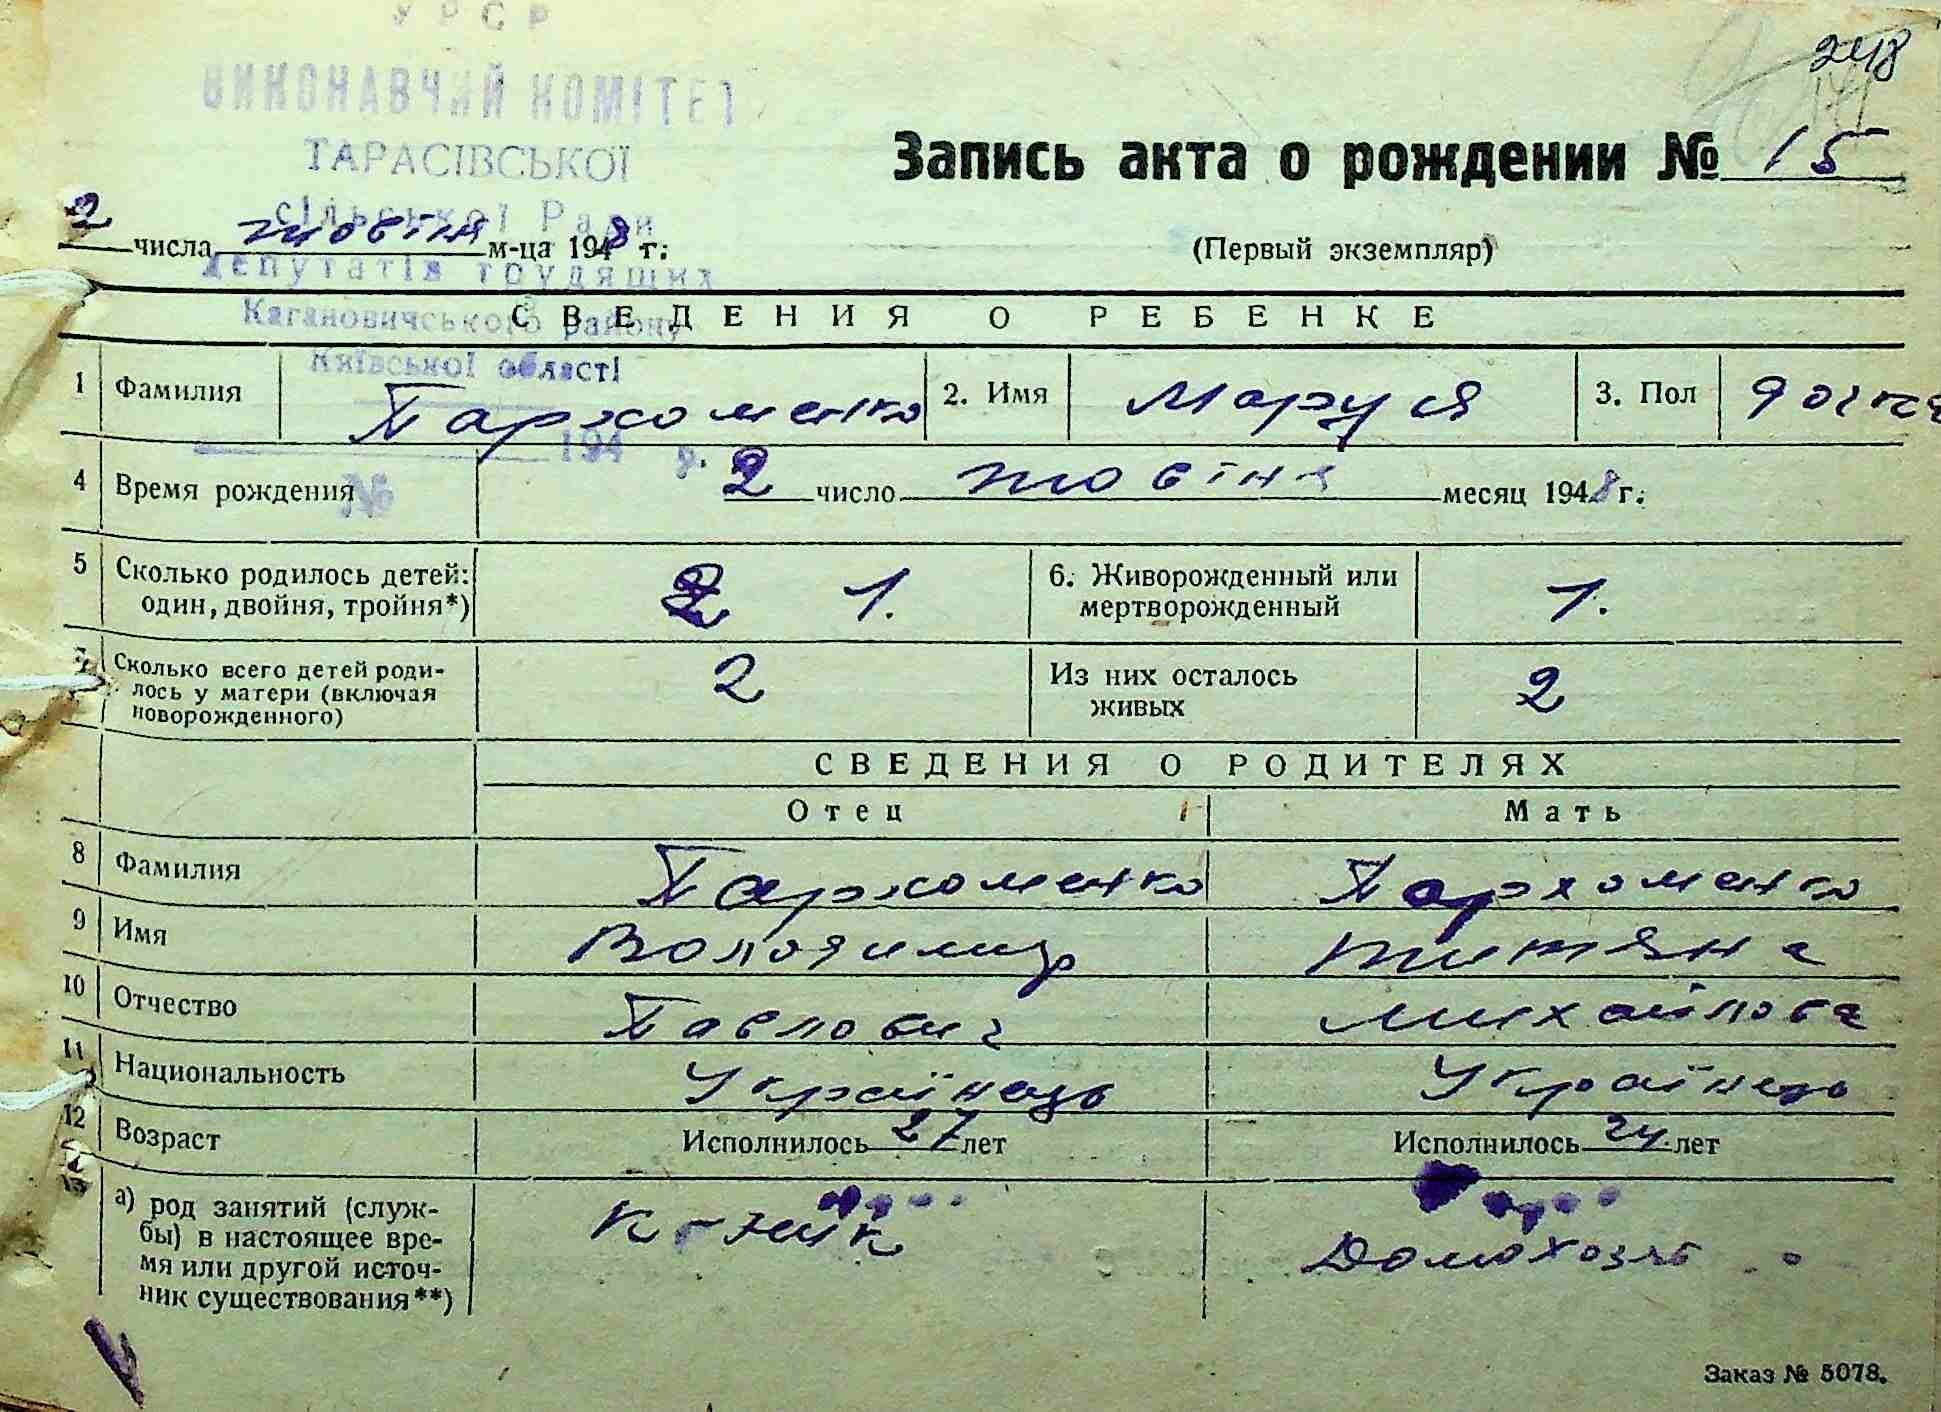 УРСР
248
ВИКОНАВЧИЙ КОМІТЕТ
ТАРАСІВСЬКОЇ
сільської Ради
депутатів трудящих
Кагановичського району
Київської області
194 р.
№
Запись акта о рождении № 15
2 числа жовтня м-ца 1948 г.
(Первый экземпляр)
СВЕДЕНИЯ О РЕБЕНКЕ
1 Фамилия Пархоменко 2. Имя Маруся 3. Пол дочка
4 Время рождения 2 число жовтня месяц 1948 г.
5 Сколько родилось детей: 2 1. 6. Живорожденный или 1.
один, двойня, тройня*) мертворожденный
7 Сколько всего детей роди- 2 Из них осталось 2
лось у матери (включая живых
новорожденного)
СВЕДЕНИЯ О РОДИТЕЛЯХ
Отец Мать
8 Фамилия Пархоменко Пархоменко
9 Имя Володимир Титяна
10 Отчество Павлович Михайловна
11 Национальность Українець Українець
12 Возраст Исполнилось 27 лет Исполнилось 24 лет
13 а) род занятий (служ-
бы) в настоящее вре-
мя или другой источ-
ник существования**)
Заказ № 5078.